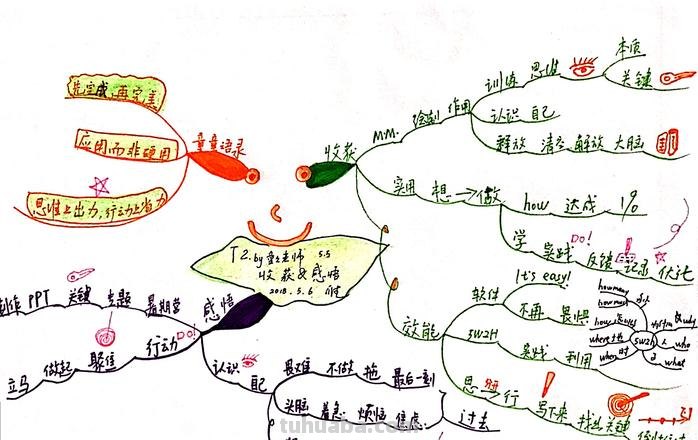 先完成,再完美
应用而非硬用
思维上出力,行动上省力
童童语录
收获
M.M.
绘制 作用
训练 思维
本质
关键
认识 自己
释放 清空 解放 大脑
实用 想→做
how 达成 1%
学 实践 反馈 记录
DO!
T2.by 童童老师 5.5
收获&感悟
2018.5.6
效能
软件
It's easy!
不再 畏惧
5W2H
实践 利用
how many
how much
when
5W2H
who
what
思 行 写下来 找出关键
感悟
PPT 关键 主题 暑期营
DO!
行动力
聚焦
做起
立马
认识
自己
畏难 不做 拖 最后一刻
头脑 着急 烦恼 焦虑
过去
tuhuaba.com